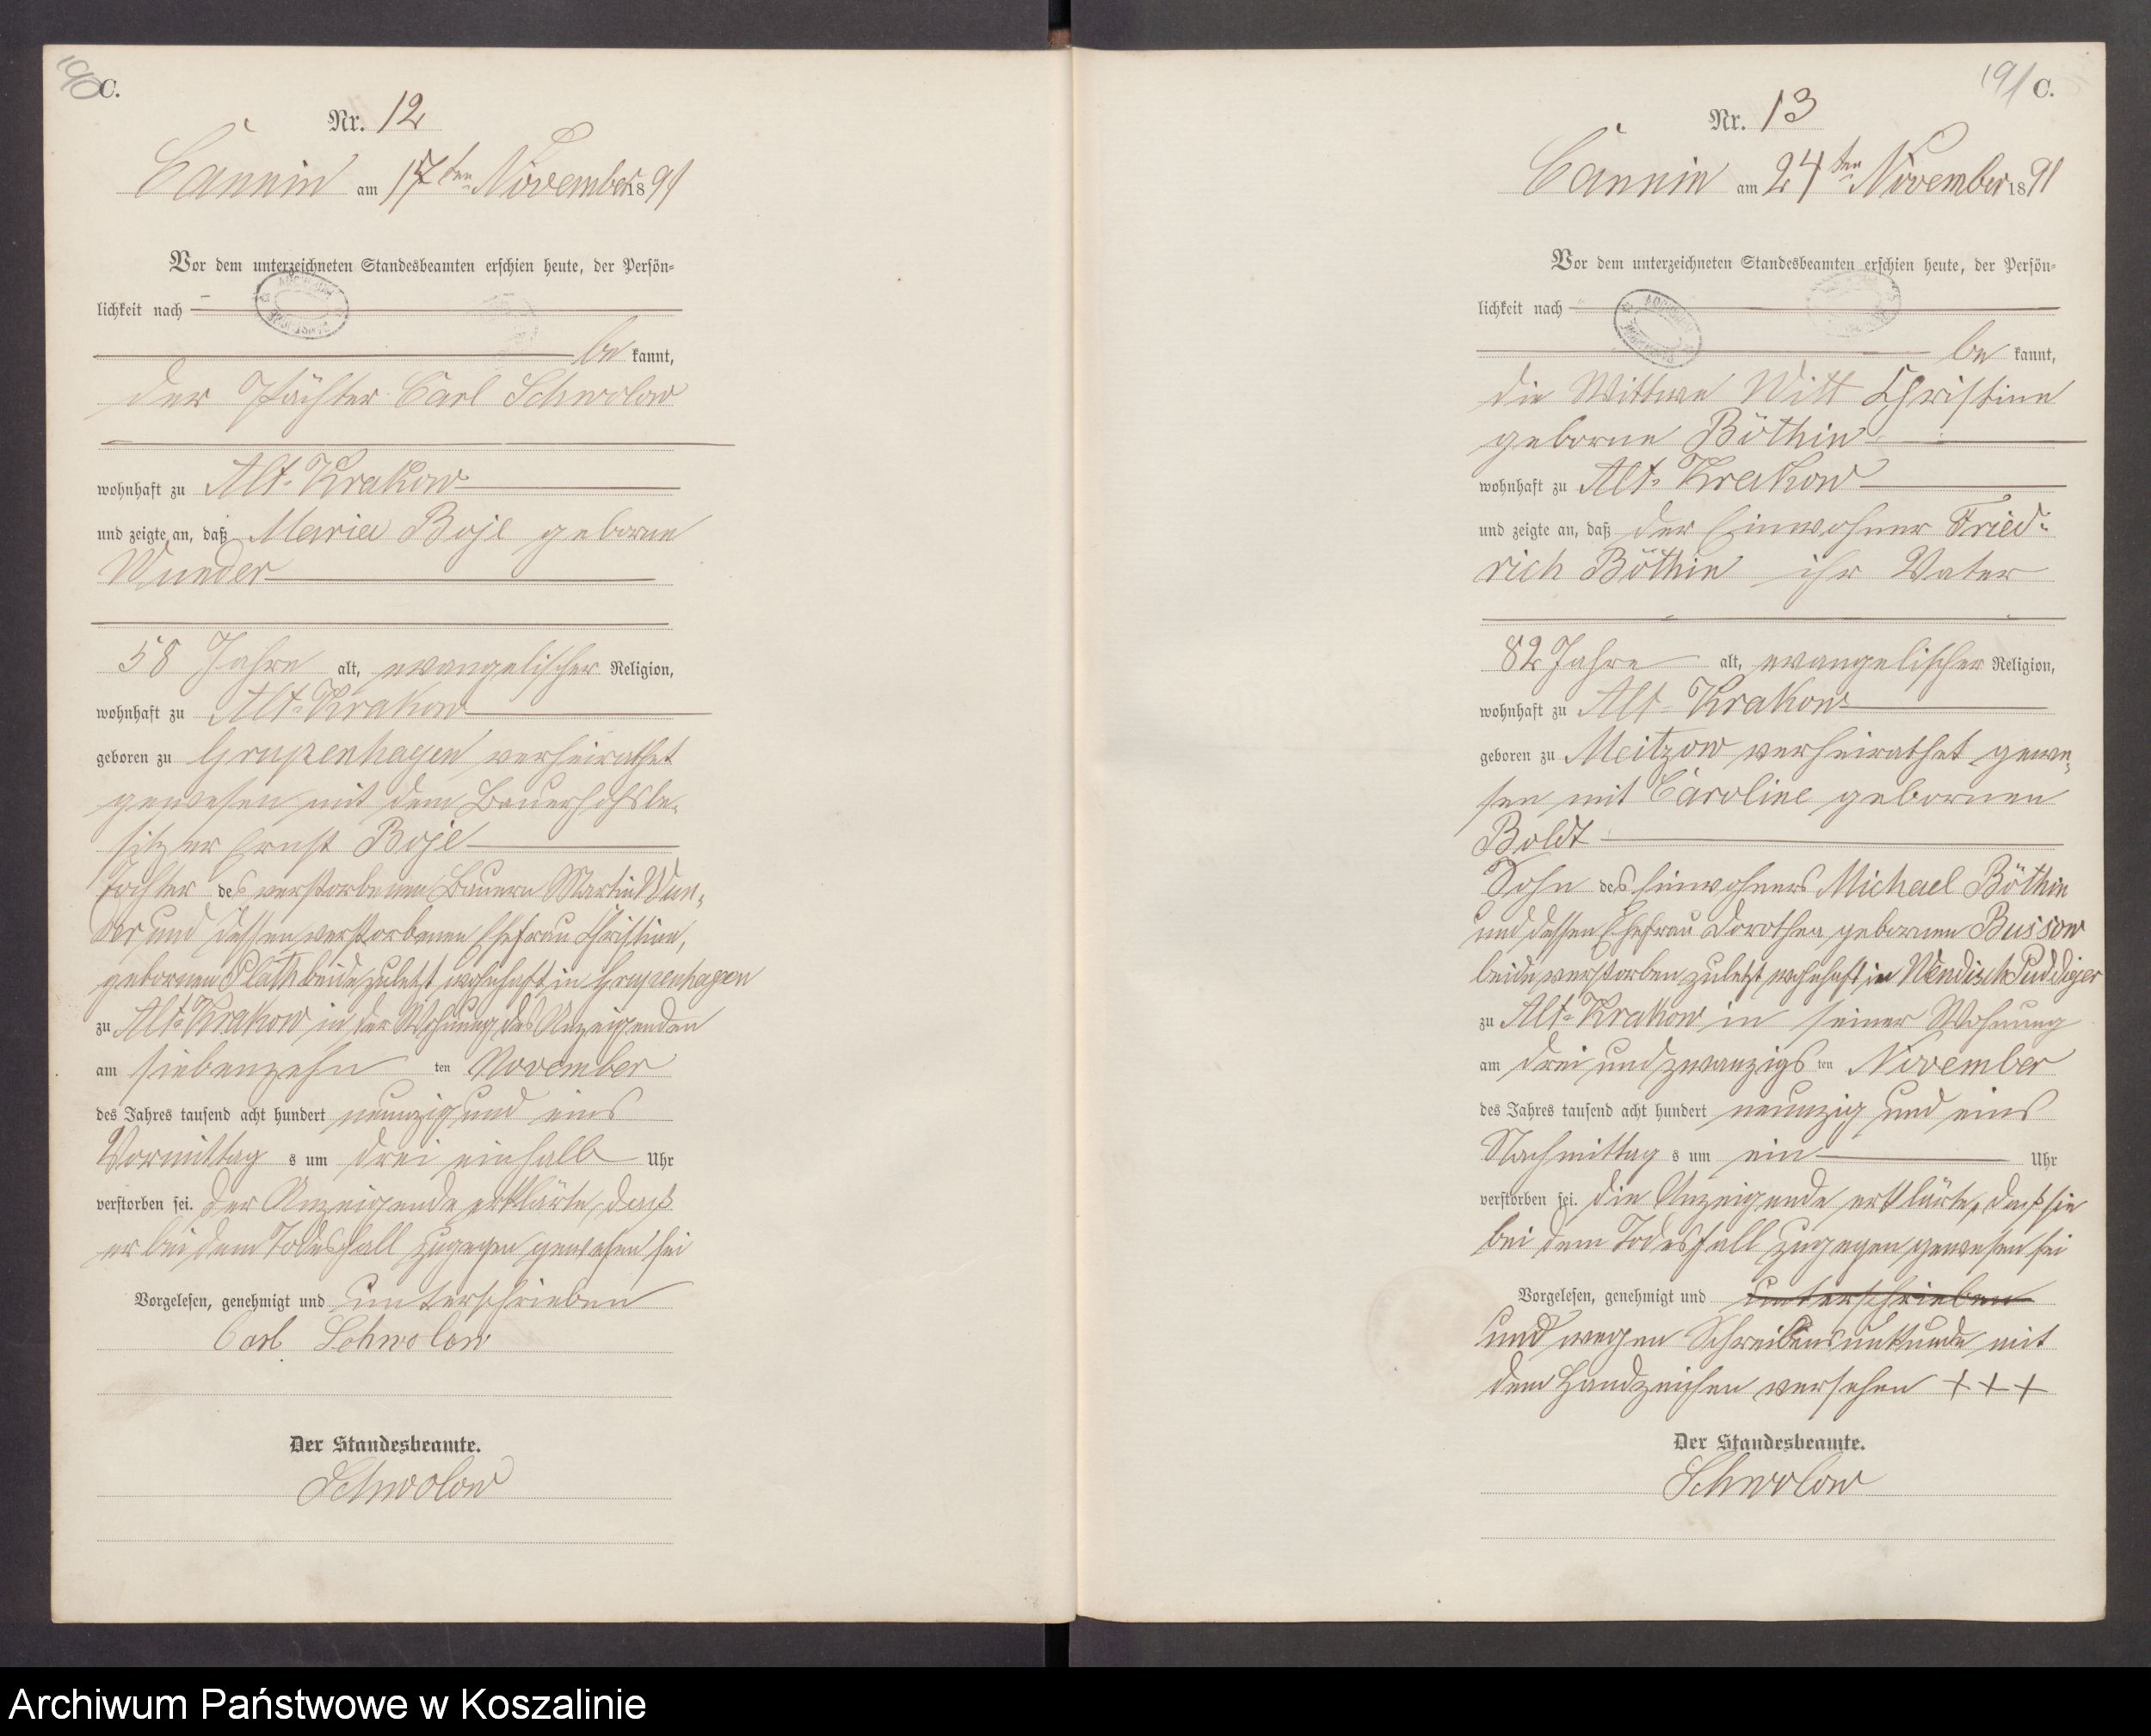 190 C.
Nr. 12
Cannin am 17ten November 1891
Vor dem unterzeichneten Standesbeamten erschien heute, der Persön-
lichkeit nach
be kannt,
der Pächter Carl Schwolow
wohnhaft zu Alt-Krakow
und zeigte an, daß Maria Boje geborne
Wunder
58 Jahre alt, evangelischer Religion,
wohnhaft zu Alt-Krakow
geboren zu Grupenhagen verheirathet
gewesen mit dem Bauerhofsbe-
sitzer Ernst Boje
Tochter des verstorbenen Bauern Martin Wun-
der und dessen verstorbenen Ehefrau Christine,
gebornen Plath beide zuletzt wohnhaft in Grupenhagen
zu Alt-Krakow in der Wohnung des Anzeigenden
am siebenzehn ten November
des Jahres tausend acht hundert neunzig und eins
Vormittag s um drei einhalb Uhr
verstorben sei. Der Anzeigende erklärte, daß
er bei dem Todesfall zugegen gewesen sei
Vorgelesen, genehmigt und unterschrieben
Carl Schwolow
Der Standesbeamte.
Schwolow
191 C.
Nr. 13
Cannin am 24ten November 1891
Vor dem unterzeichneten Standesbeamten erschien heute, der Persön-
lichkeit nach
be kannt,
die Wittwe Witt Christine
geborne Böthin
wohnhaft zu Alt-Krakow
und zeigte an, daß der Einwohner Fried-
rich Böthin ihr Vater
82 Jahre alt, evangelischer Religion,
wohnhaft zu Alt-Krakow
geboren zu Meitzow verheirathet gewe-
sen mit Caroline gebornen
Boldt
Sohn des Einwohners Michael Böthin
und dessen Ehefrau Dorothea gebornen Bussow
beide verstorben zuletzt wohnhaft in Wendisch Puddiger
zu Alt-Krakow in seiner Wohnung
am drei und zwanzigs ten November
des Jahres tausend acht hundert neunzig und eins
Nachmittag s um ein Uhr
verstorben sei. Die Anzeigende erklärte, daß sie
bei dem Todesfall zugegen gewesen sei
Vorgelesen, genehmigt und unterschrieben
und wegen Schreibensunkunde mit
dem Handzeichen versehen + + +
Der Standesbeamte.
Schwolow
Archiwum Państwowe w Koszalinie